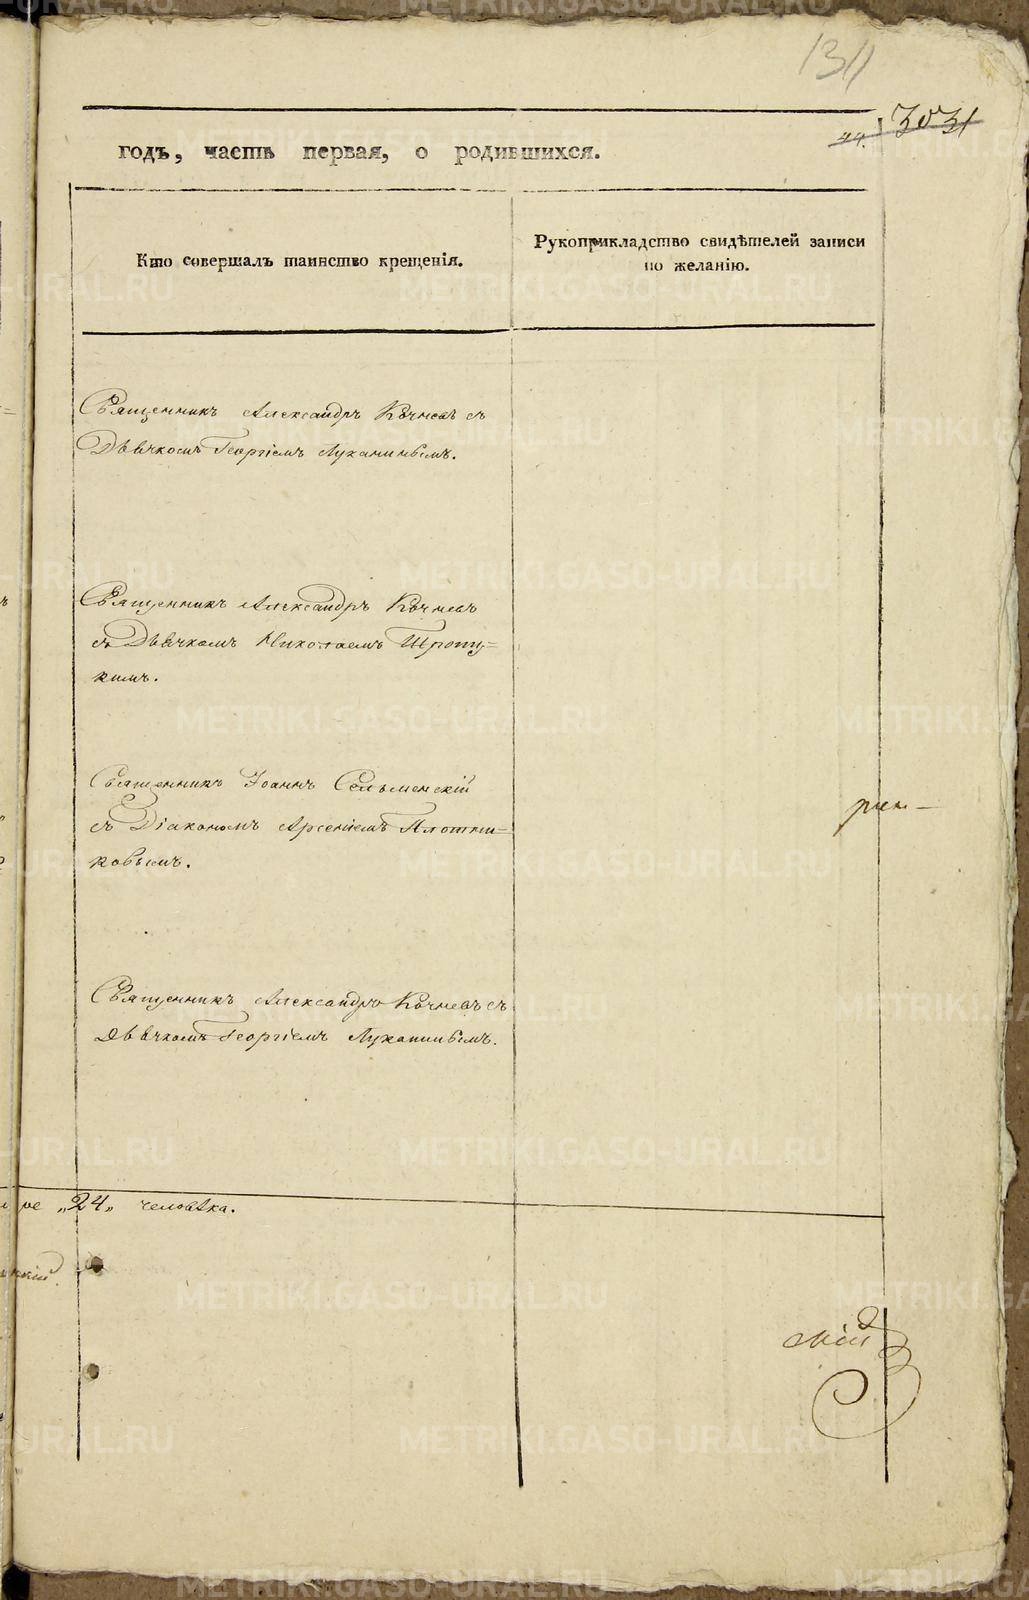 131
44. 3031
годъ, часть первая, о родившихся.
Кто совершалъ таинство крещенія.
Рукоприкладство свидѣтелей записи
по желанію.
Священникъ Александръ Кочневъ съ
Дьячкомъ Георгіемъ Луканинымъ.
Священникъ Александръ Кочневъ
съ Дьячкомъ Николаемъ
кимъ.
Священникъ Іоаннъ Сельменскій
съ Діакономъ Арсеніемъ Плотни=
ковымъ.
Священникъ Александръ Кочневъ съ
Дьячкомъ Георгіемъ Луканинымъ.
рое „24„ человѣка.
скій
METRIKI.GASO-URAL.RU